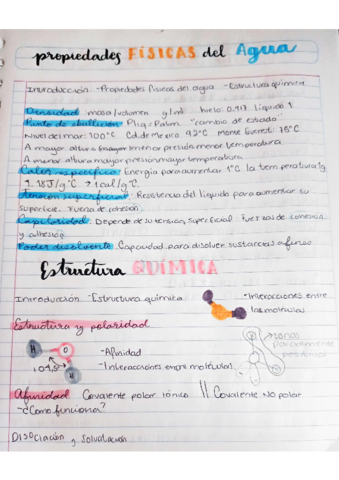 propiedades FÍSICAS del Agua
Introducción -Propiedades físicas del agua -Estructura química
Densidad masa/volumen g/ml hielo: 0.917 líquida 1
Punto de ebullición Pliq = Patm "cambio de estado"
Nivel del mar: 100°C Cd. de México 92°C Monte Everest: 75°C
A mayor altura menor presión menor temperatura
A menor altura mayor presión mayor temperatura
Calor específico: Energía para aumentar 1°C la temperatura 1g
1. 18J/g°C → 1cal/g°C.
Tensión superficial: Resistencia del líquido para aumentar su
superficie. Fuerza de cohesión
Capilaridad: Depende de su tensión superficial Fuerzas de cohesión
y adhesión
Poder disolvente: Capacidad para disolver sustancias afines
Estructura QUÍMICA
Introducción -Estructura química
-Interacciones entre
las moléculas
Estructura y polaridad
H O
-Afinidad
-Interacciones entre moléculas
104.5
H
zonas
parcialmente
positivas
Afinidad Covalente polar iónico || Covalente No polar
-¿Cómo funciona?
Disociación y Solvatación